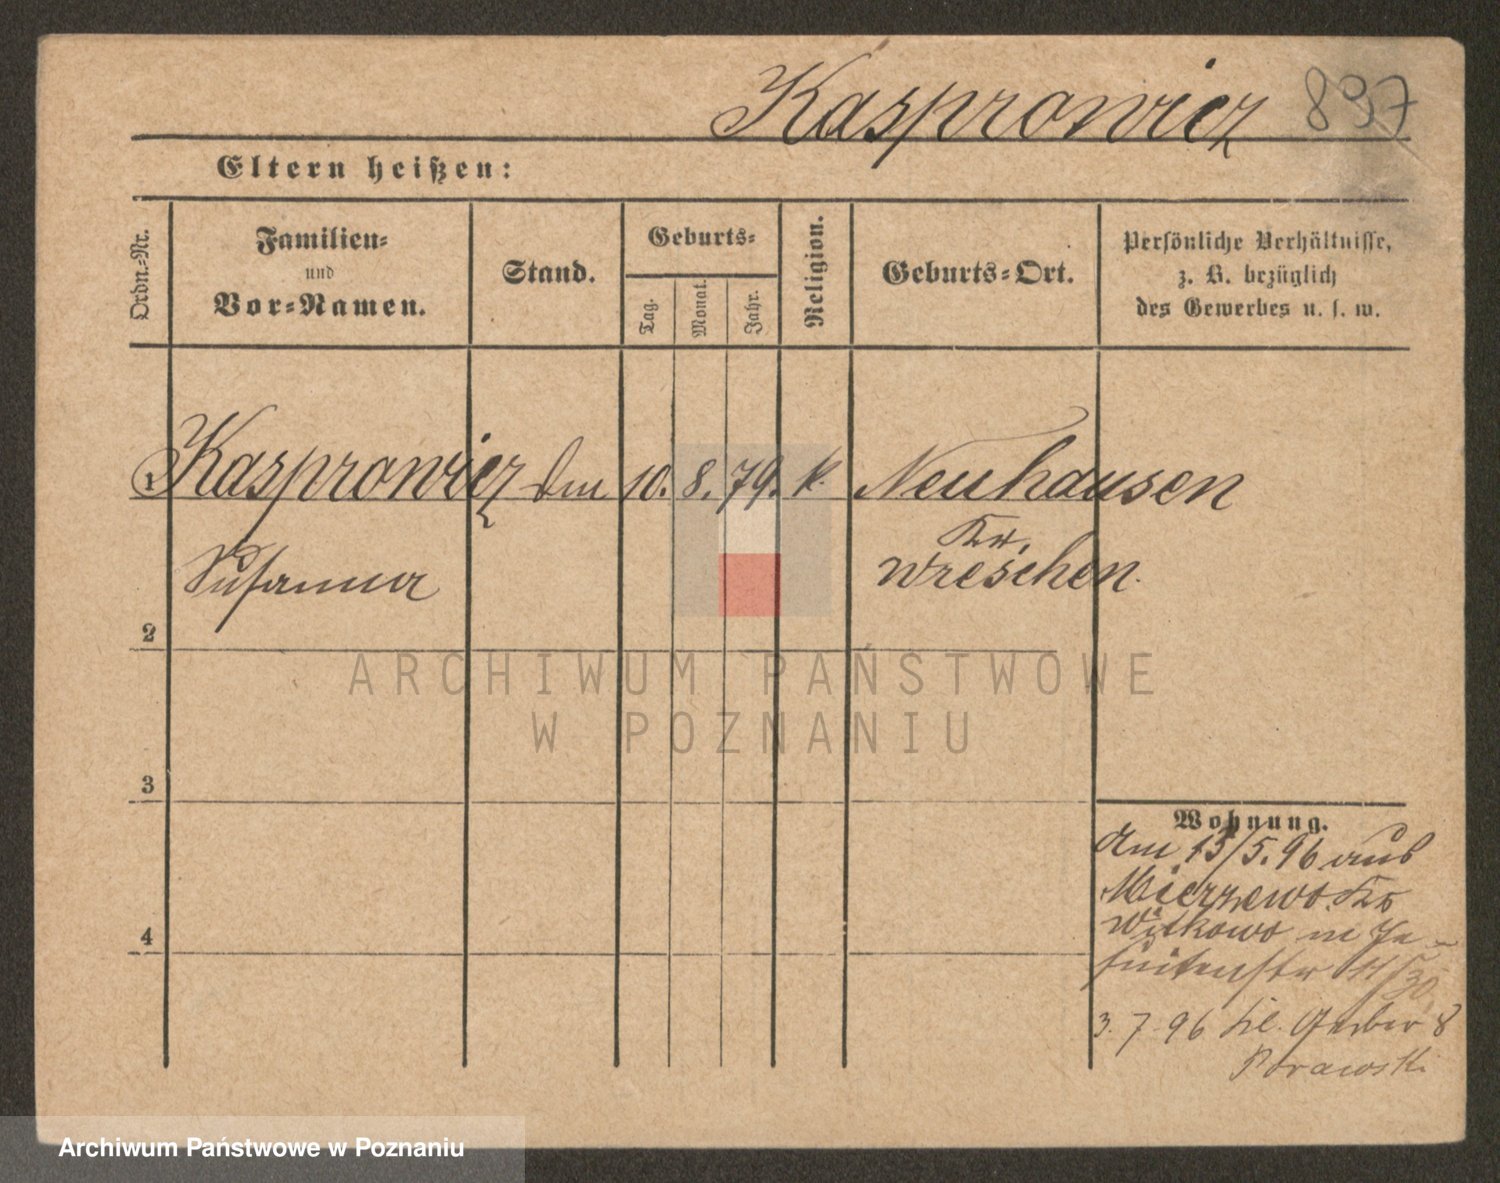 Kasprowicz 897
Eltern heißen:
Ordn.-Nr.
Familien-
und
Vor-Namen.
Stand.
Geburts-
Tag.
Monat.
Jahr.
Religion.
Geburts-Ort.
Persönliche Verhältnisse,
z. B. bezüglich
des Gewerbes u. s. w.
1 Kasprowicz 10. 8. 79. k. Neuhausen
Susanna
Kr.
Wreschen.
2
3
4
Wohnung.
Am 13/5.96 aus
Mierzewo Kr
Witkowo in Je-
suitenstr 11/30
3.7.96 Kl. Gerber 8
Morawski
ARCHIWUM PAŃSTWOWE
W POZNANIU
Archiwum Państwowe w Poznaniu